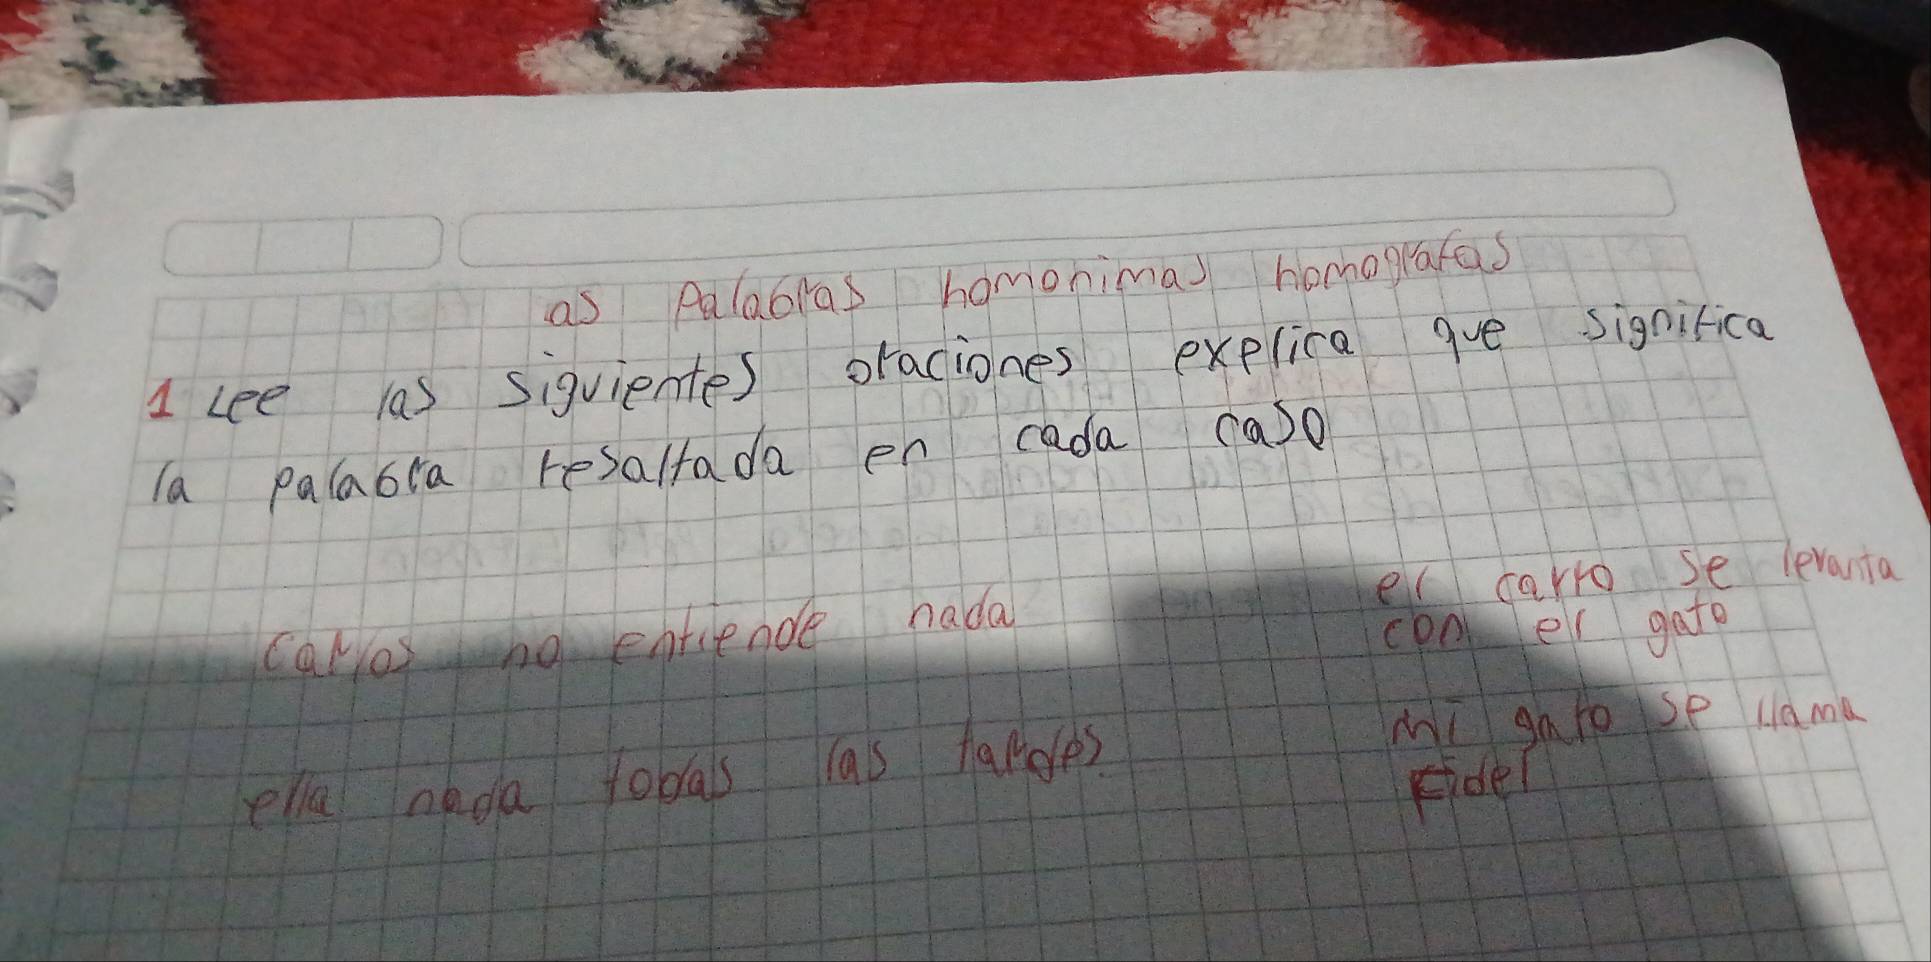 as Palabras homonimas homografas
1 Lee las siguientes oraciones explica que significa
la palabra resaltada en cada caso
Carlos no entiende nada
ella nada todas las tardes.
el carro se levanta
con el gato
mi gato se llama
Fidel